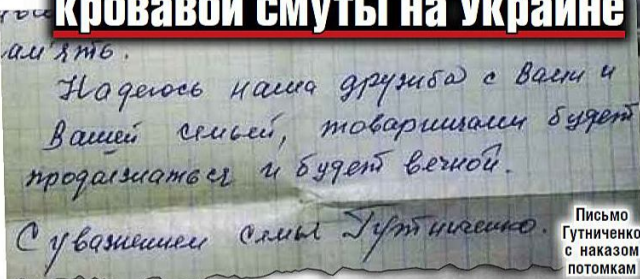 кровавой смуты на Украине
ам'ять.
Надеюсь наша дружба с Вами и
Вашей семьей, товарищами будет
продолжаться и будет вечной.
С уважением семья Гутниченко.
Письмо
Гутниченко
с наказом
потомкам